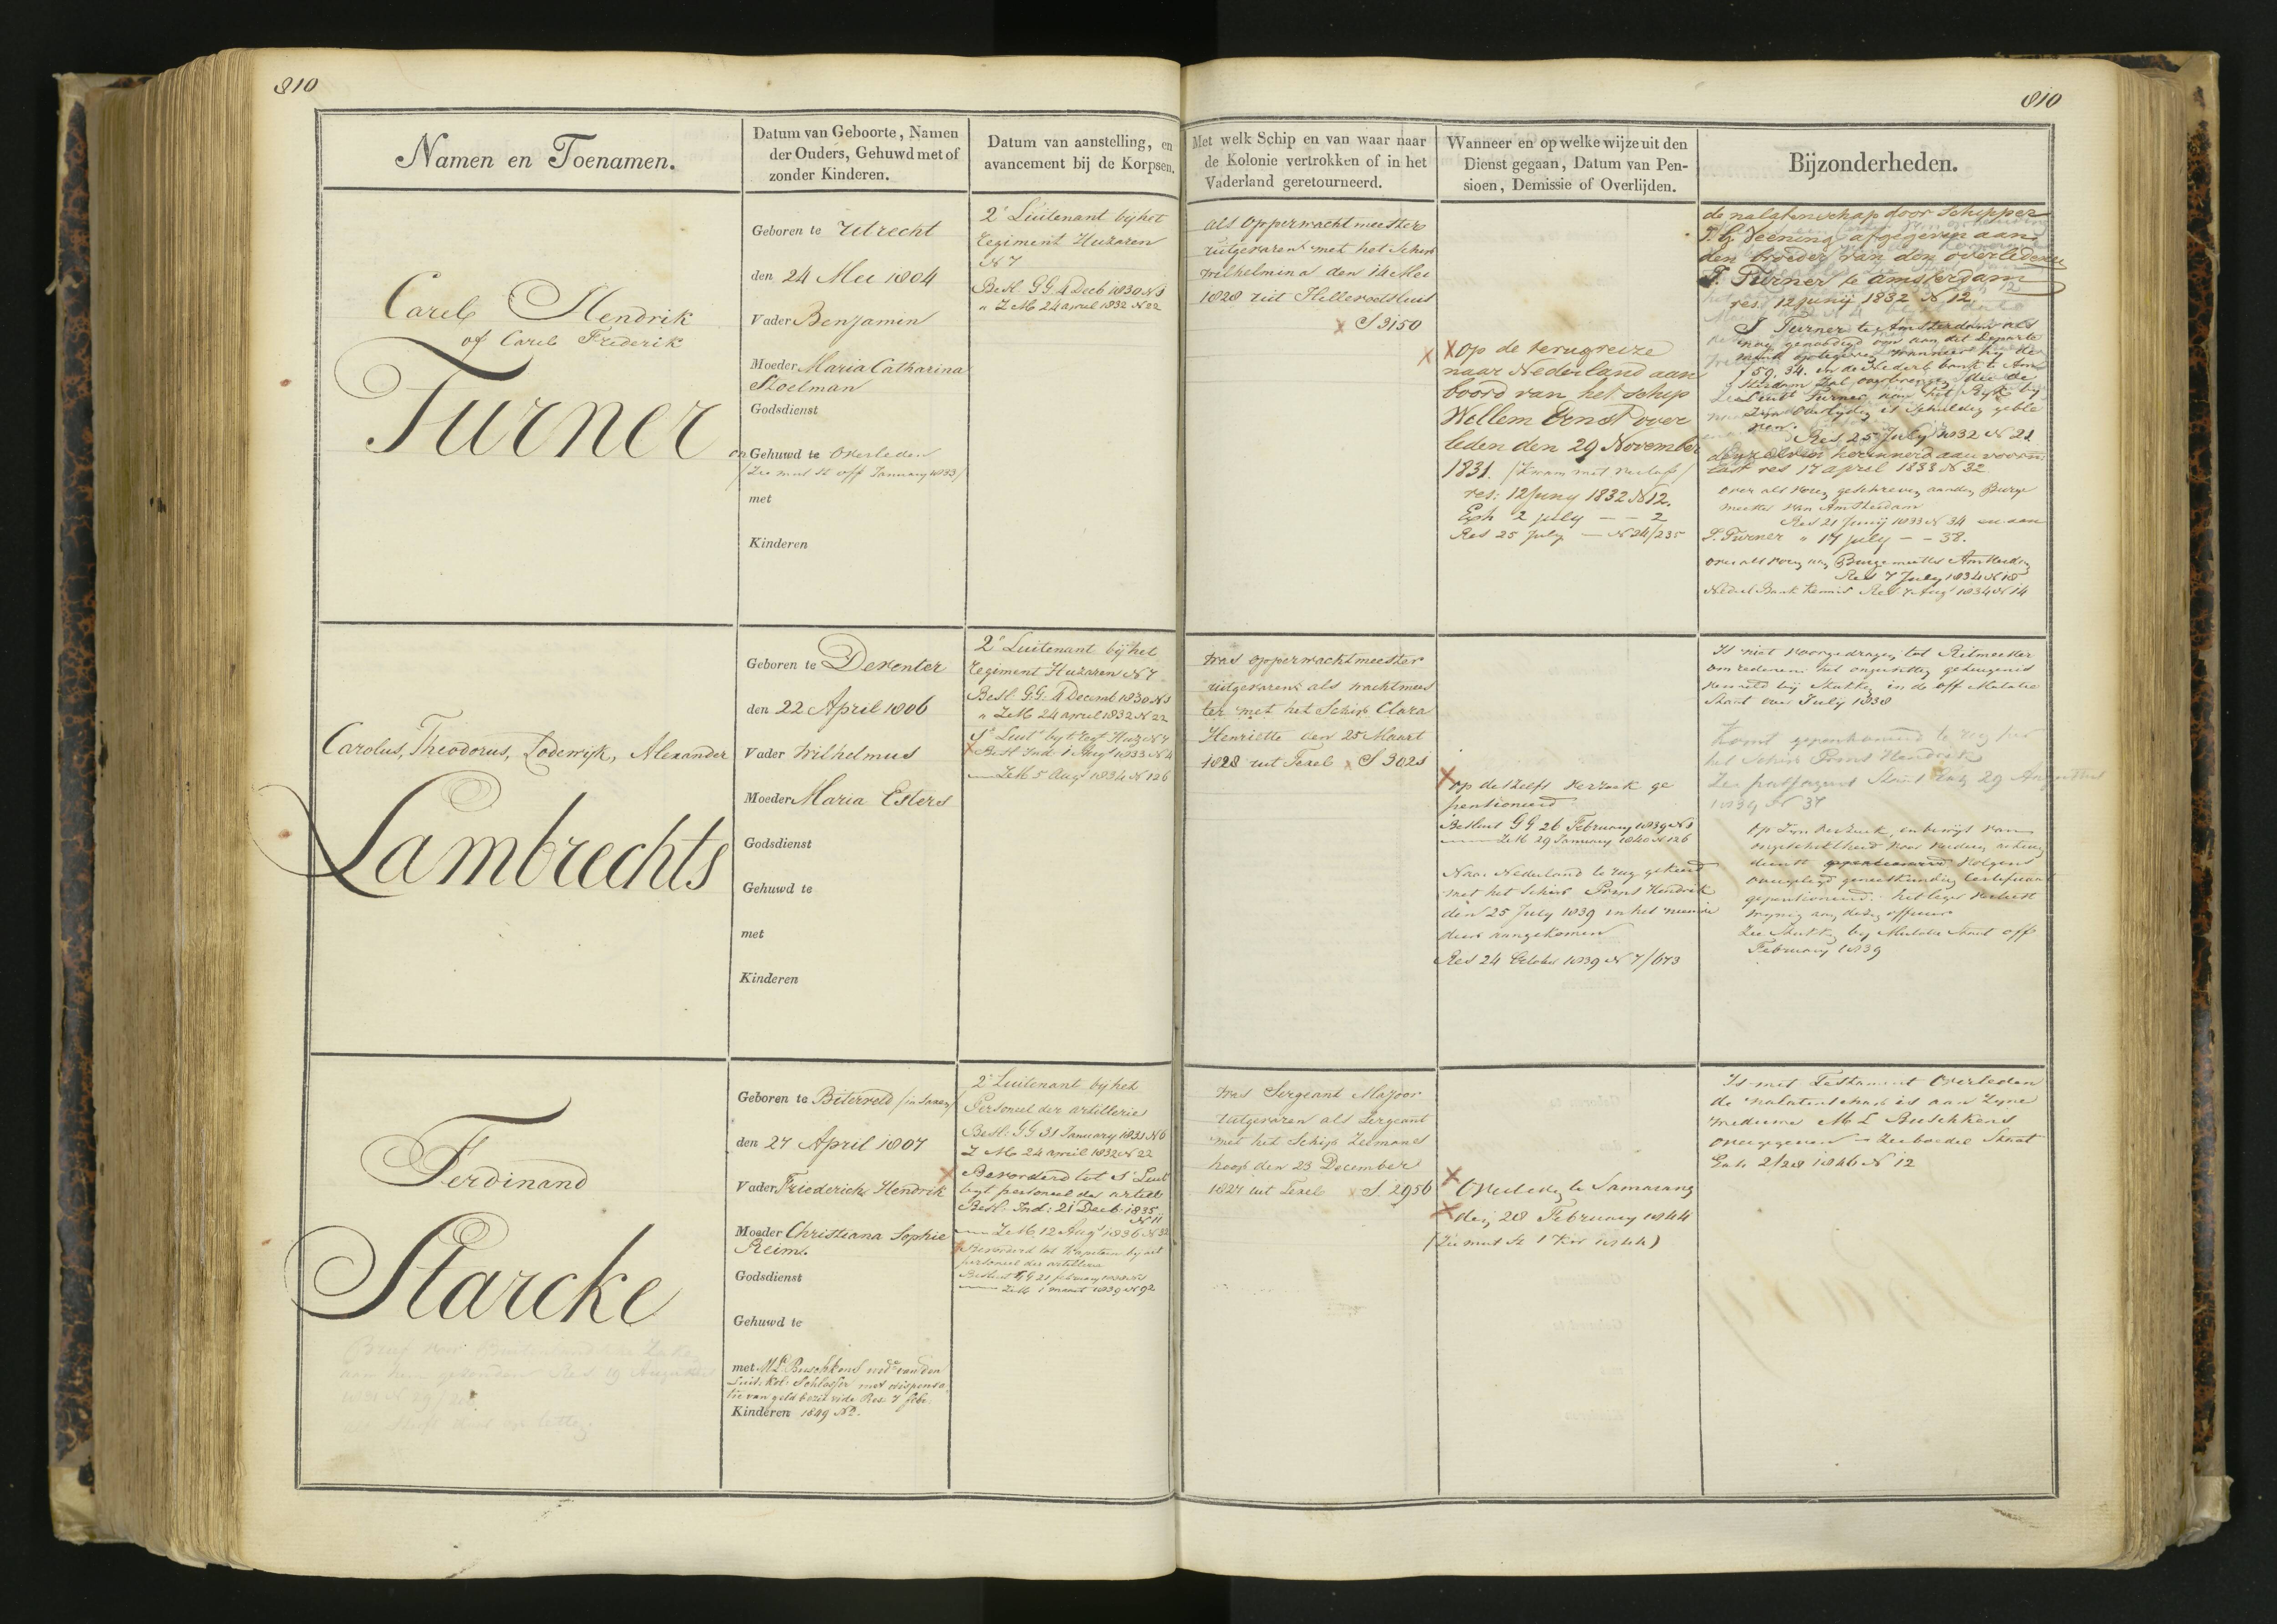 810
810
Namen en Toenamen.
Datum van Geboorte, Namen
der Ouders, Gehuwd met of
zonder Kinderen.
Datum van aanstelling, en
avancement bij de Korpsen.
Met welk Schip en van waar naar
de Kolonie vertrokken of in het
Vaderland geretourneerd.
Wanneer en op welke wijze uit den
Dienst gegaan, Datum van Pen-
sioen, Demissie of Overlijden.
Bijzonderheden.
Carel Hendrik
of Carel Frederik
Turner
Geboren te Utrecht
den 24 Mei 1804
Vader Benjamin
Moeder Maria Catharina
Stoelman
Godsdienst
on Gehuwd te Overleden
(Zie mut St off January 1833)
met
Kinderen
2e Luitenant bij het
regiment Huzaren
N 7
Besl. GG 4 Decb 1830 N 3
" Z M 24 april 1832 N 22
als Opperwachtmeester
uitgevaren met het Schip
Wilhelmina den 14 Mei
1828 uit Hellevoetsluis
x S 3150
x X op de terugreize
naar Nederland aan
boord van het schip
Willem Ernst over
leden den 29 November
1831.
res: 12 Juny 1832 N 12.
Exh 2 july — — 2
Res 25 July — N 24/235
de nalatenschap door Schipper
T. G. Veening afgegeven aan
den broeder van den overledene
T. Turner te amsterdam
res. 12 Junij 1832 N 12
S Turner te Amsterdam als
nog genoodigd om aan dit Departe
ment optegeven wanneer hij de
f 59.34. in de Nederl bank te Am
sterdam zal overbrengen die de
Luit Turner aan het Ryk bij
zijn overlyden is schuldig geble
ven.
Res 25 July 1832 N 21
denzelven herinnerd aan voorm:
last res 17 april 1833 N 32
over als voren geschreven aan den Burge
meester van Amsterdam
Res 21 Junij 1833 N 34 en aan
S. Turner " 17 july — — 38.
over als voren aan Burgemeester Amsterdam
Res 7 July 1834 N 18
Nederl Bank kennis Res 7 Aug 1834 N 14
Carolus, Theodorus, Lodewijk, Alexander
Lambrechts
Geboren te Deventer
den 22 April 1806
Vader Wilhelmus
Moeder Maria Esters
Godsdienst
Gehuwd te
met
Kinderen
2e Luitenant bij het
regiment Huzaren N 7
Besl: GG: 4 Decemb 1830 N 3
" Z M 24 april 1832 N 22
1e Luit by t Regt Huz N 7
x Besl Ind 1 Aug 1833 N 4
— Z M 5 Aug 1834 N 126
was opperwachtmeester
uitgevaren als wachtmees
ter met het Schip Clara
Henriette den 25 Maart
1828 uit Texel x S 3023
X op deszelfs verzoek ge
pensioneerd
Besluit GG 26 February 1839 N 1
— Z M 29 January 1840 N 126
Naar Nederland te rug gekeerd
met het schip Prins Hendrik
den 25 July 1839 in het nieuwe
diep aangekomen
Res 24 October 1839 N 7/673
Is niet voorgedragen tot Ritmeester
om redenen het ongunstig getuigenis
vermeld bij Stukken in de off Mutatie
Staat over July 1838
Komt gepensioneerd te rug per
het Schip Prins Hendrik
Zie passagiers Staat Exh 29 Augustus
1839 N 37
Op zijn verzoek, en bewijs van
ongeschiktheid voor verdere activen
dienst gepensioneerd volgens
overgelegd geneeskundig Certificaat
gepensioneerd. het leger verliest
weinig aan dezen officier
Zie Stukken bij Mutatie Staat off
February 1839
Ferdinand
Starcke
Brief voor Buitenlandsche Zaken
aan hem gezonden Res 19 Augustus
Geboren te Biterveld (in Saxen)
den 27 April 1807
Vader Friederich Hendrik
Moeder Christiana Sophie
Reims
Godsdienst
Gehuwd te
met M L Buschkens wede van den
Luit. Kol. Schlosser met dispensa
tie van geld bezit vide Res. 7 febr.
Kinderen 1849 No.
2e Luitenant bij het
Personeel der artillerie
Besl: GG 31 January 1831 N 6
Z M 24 april 1832 N 22
x Bevorderd tot 1e Luit
byt personeel der artille
Besl. Ind: 21 Decb: 1835
N 11
— Z M 12 Aug 1836 N 32
x Bevorderd tot Kapitein by het
personeel der artillerie
Besluit GG 21 february 1838 N 1
— Z M 1 maart 1839 N 92
was Sergeant Majoor
uitgevaren als Sergeant
met het Schip Zeemans
hoop den 23 December
1827 uit Texel x S 2956
X Overleden te Samarang
X den 28 February 1844
(Zie mut St 1 Kw 1844)
Is met Testament Overleden
de nalatenschap is aan zyne
weduwe M L Buschkens
overgegeven — Zie boedel Staat
Exh 2/28 1846 N 12